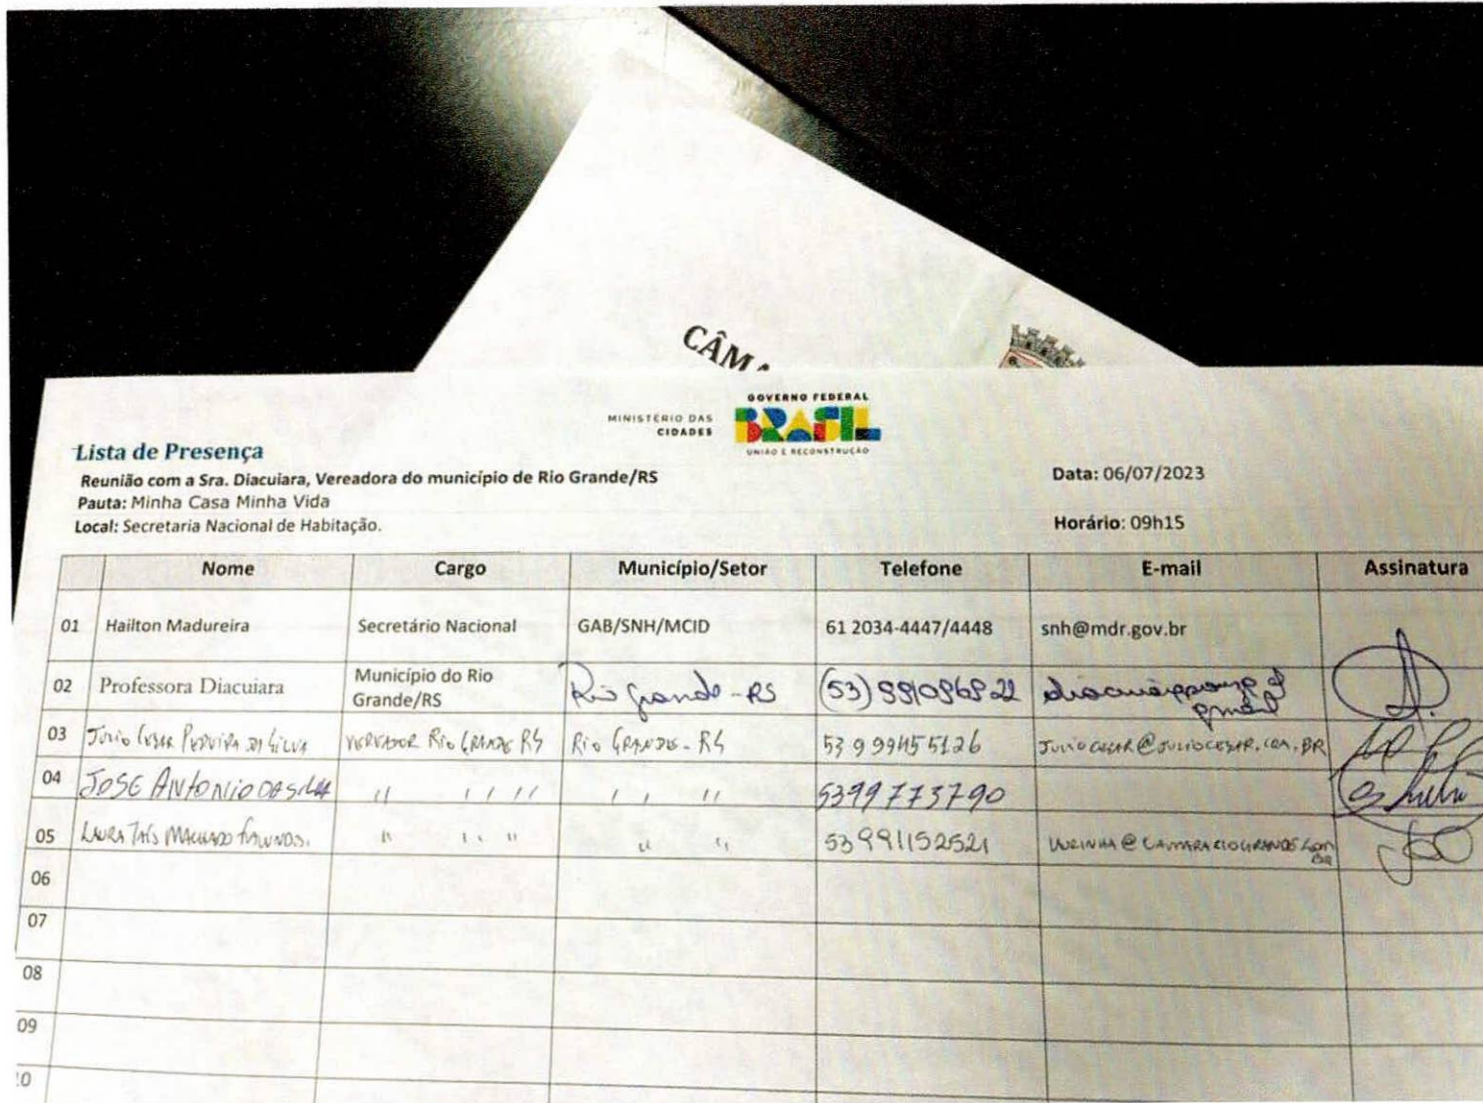 CÂMA
MINISTÉRIO DAS
CIDADES
GOVERNO FEDERAL
BRASIL
UNIÃO E RECONSTRUÇÃO
Lista de Presença
Reunião com a Sra. Diacuiara, Vereadora do município de Rio Grande/RS
Data: 06/07/2023
Pauta: Minha Casa Minha Vida
Local: Secretaria Nacional de Habitação.
Horário: 09h15
Nome Cargo Município/Setor Telefone E-mail Assinatura
01 Hailton Madureira Secretário Nacional GAB/SNH/MCID 61 2034-4447/4448 snh@mdr.gov.br
02 Professora Diacuiara Município do Rio Grande/RS Rio Grande - RS (53)
03 Julio Cesar Pereira da Silva VEREADOR RIO GRANDE RS RIO GRANDE - RS 53 9 9945 5126 JULIOCESAR@JULIOCESAR.COM.BR
04 JOSE ANTONIO DA SILVA " " " " " 5399773790
05 LAURA TAÍS MACHADO " " " " " 53991152521
06
07
08
09
10